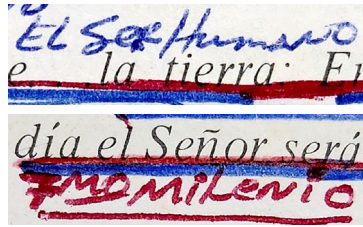 EL Ser Humano
e la tierra. E
día el Señor será
7MO MILENIO